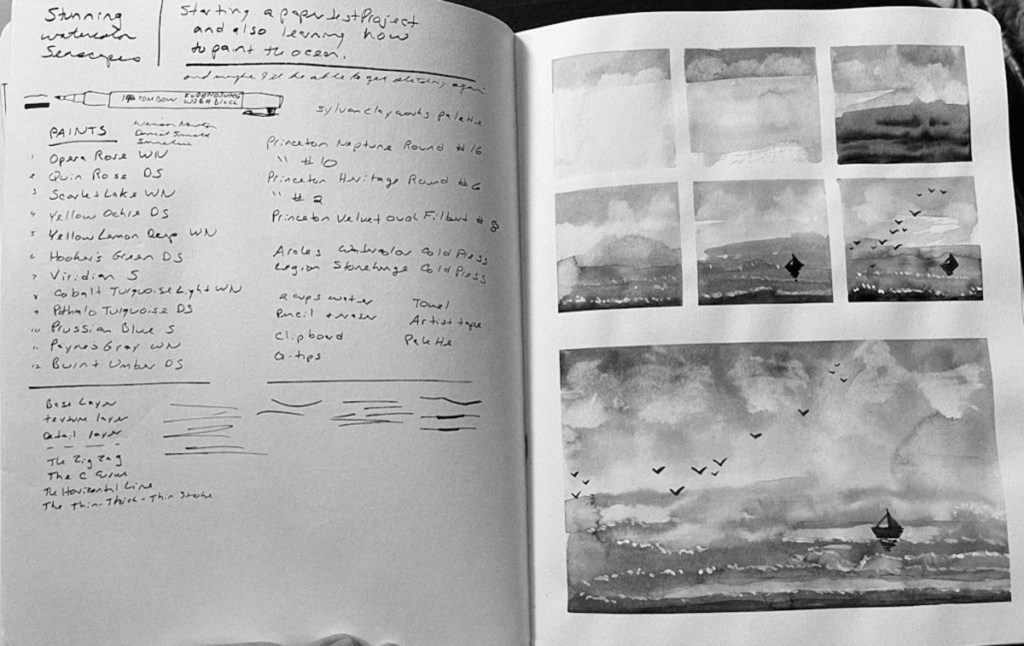 Stunning
watercolor
Seascapes
Starting a paper test Project
and also learning how
to paint the ocean.
and maybe I'll be able to get sketchy again
TOMBOW FUDENOSUKE
WS BH BLACK
sylvan clayworks palette
PAINTS
Winsor Newton
Daniel Smith
Sennelier
1 Opera Rose WN
2 Quin Rose DS
3 Scarlet Lake WN
4 Yellow Ochre DS
5 Yellow Lemon Deep WN
6 Hooker's Green DS
7 Viridian S
8 Cobalt Turquoise Light WN
9 Pthalo Turquoise DS
10 Prussian Blue S
11 Payne's Gray WN
12 Burnt Umber DS
Princeton Neptune Round #16
" #10
Princeton Heritage Round #6
" #2
Princeton Velvetouch Filbert #8
Arches Watercolor Cold Press
Legion Stonehenge Cold Press
2 cups water
Pencil + eraser
Clipboard
Q-tips
Towel
Artist tape
Palette
Base Layer
texture layer
Detail layer
The Zig Zag
The C Curve
The Horizontal Line
The Thin-Thick-Thin Stroke